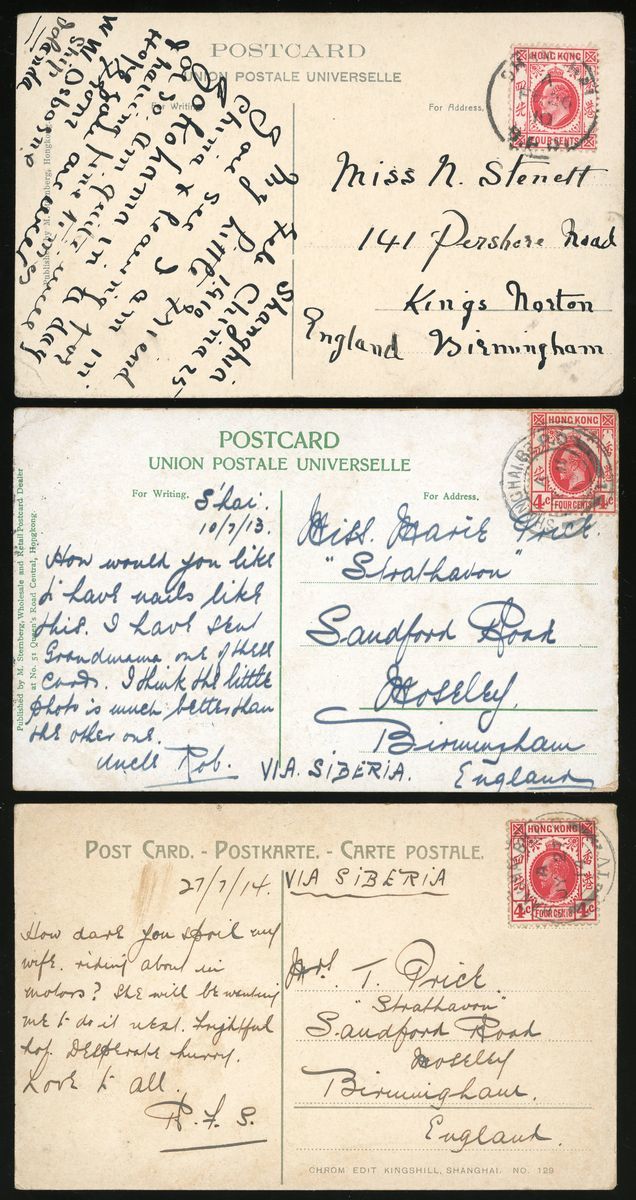 POSTCARD
UNION POSTALE UNIVERSELLE
For Writing.
For Address.
HONG KONG
FOUR CENTS
Published by M. Sternberg, Hongkong.
Shanghia
China 25
Feb 1910
My little friend
one see I am in
China & leaving for
Yokohama in a day
or so. am quite
having fine times
Hope
from
W W Osborne
Ship
Miss N. Slenett
141 Pershore Road
Kings Norton
England Birmingham
POSTCARD
UNION POSTALE UNIVERSELLE
For Writing.
For Address.
HONG KONG
4c FOUR CENTS 4c
SHANGHAI B.P.O.
Published by M. Sternberg, Wholesale and Retail Postcard Dealer
at No. 51 Queen's Road Central, Hongkong.
S'hai.
10/7/13.
How would you like
to have nails like
this. I have sent
Grandmama one of these
cards. I think the little
photo is much better than
the other one.
Uncle Rob.
VIA. SIBERIA.
Miss. Marie Price.
"Strathavon"
Sandford Road
Moseley.
Birmingham
England
POST CARD. - POSTKARTE. - CARTE POSTALE.
27/7/14.
VIA SIBERIA
HONG KONG
4c FOUR CENTS 4c
How dare you spoil my
wife. riding about in
motors? She will be wanting
me to do it next. Frightful
hot. Desperate hurry.
Love to all.
R. F. S.
Mrs. T. Price.
"Strathavon"
Sandford Road
Moseley
Birmingham.
England.
CHROM EDIT KINGSHILL, SHANGHAI. NO. 129